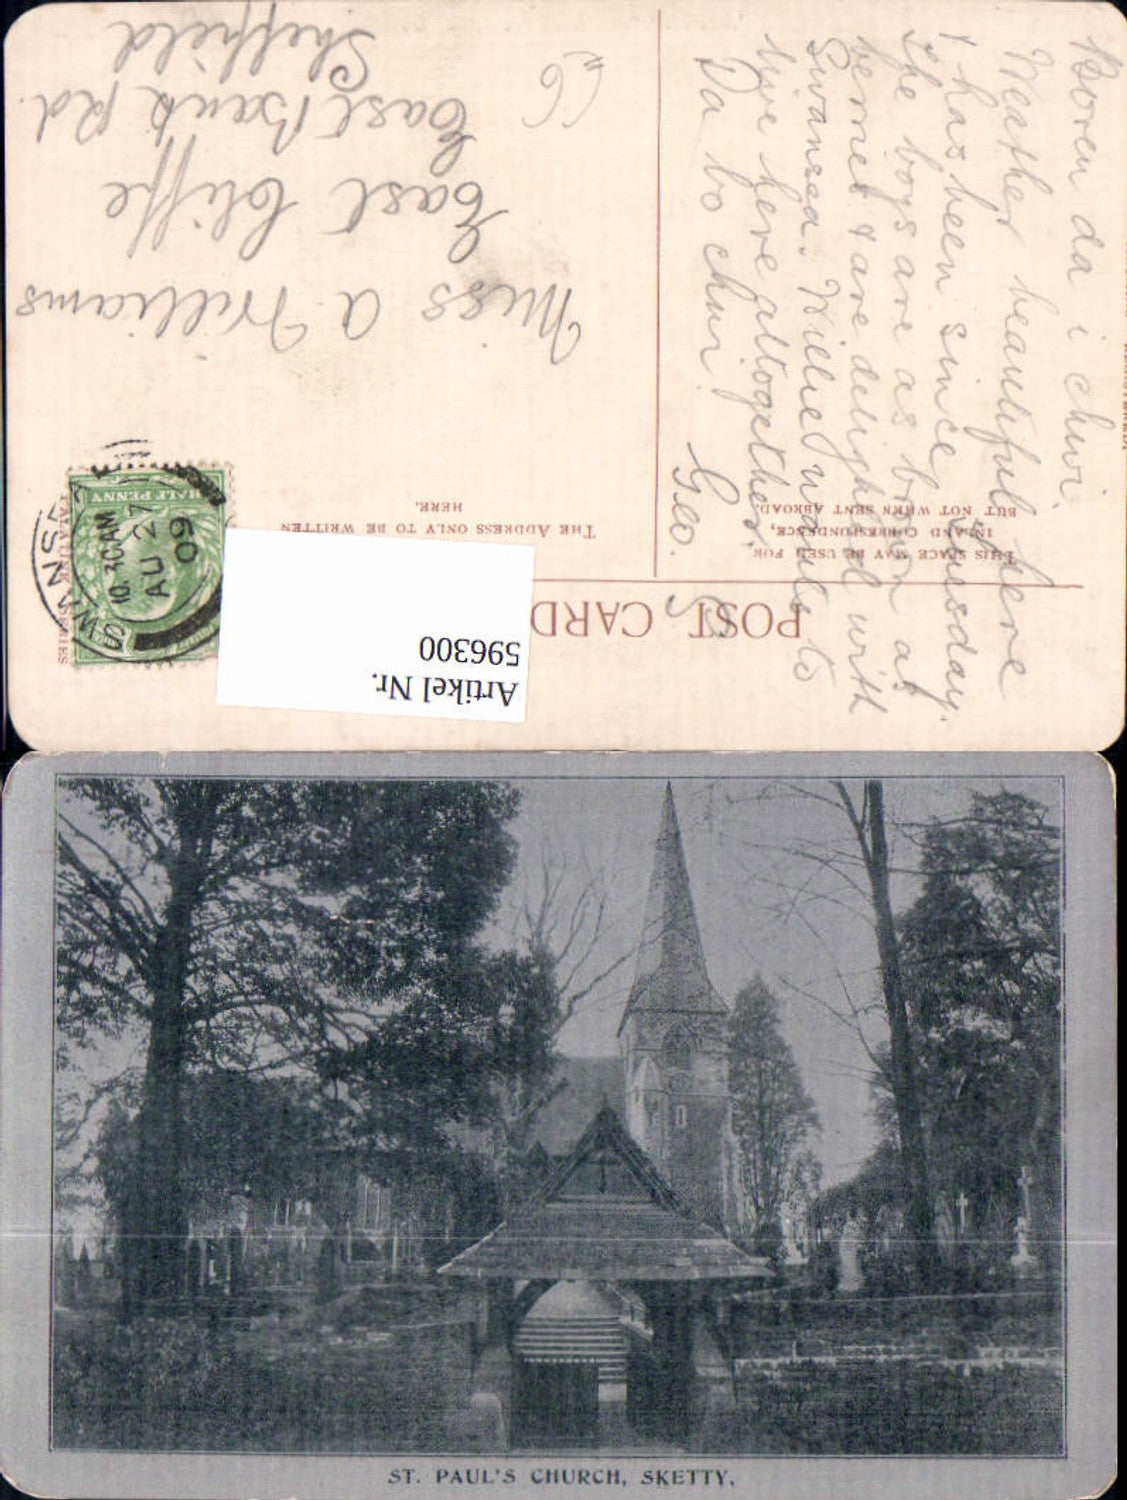 POST CARD
THIS SPACE MAY BE USED FOR
INLAND CORRESPONDENCE,
BUT NOT WHEN SENT ABROAD.
THE ADDRESS ONLY TO BE WRITTEN
HERE.
Artikel Nr.
596300
SWANSEA
10.30AM
AU 27
09
HALF PENNY
Miss A Williams
East Cliffe
East Bank Rd.
Sheffield
Boren da i chwi.
Weather beautiful here
& has been since Tuesday.
The boys are as brown as
berries & are delighted with
Swansea. Willie wants to
live here altogether.
Da bo chwi
Geo.
ST. PAUL'S CHURCH, SKETTY.